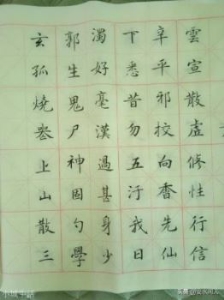 雲宣散虛修性行信
辛平邪投向香先仙
下悉昔勿五汙我日
濁好毫漢過甚身少
郭生鬼尸神固勺學
玄孤燒叁上山散三